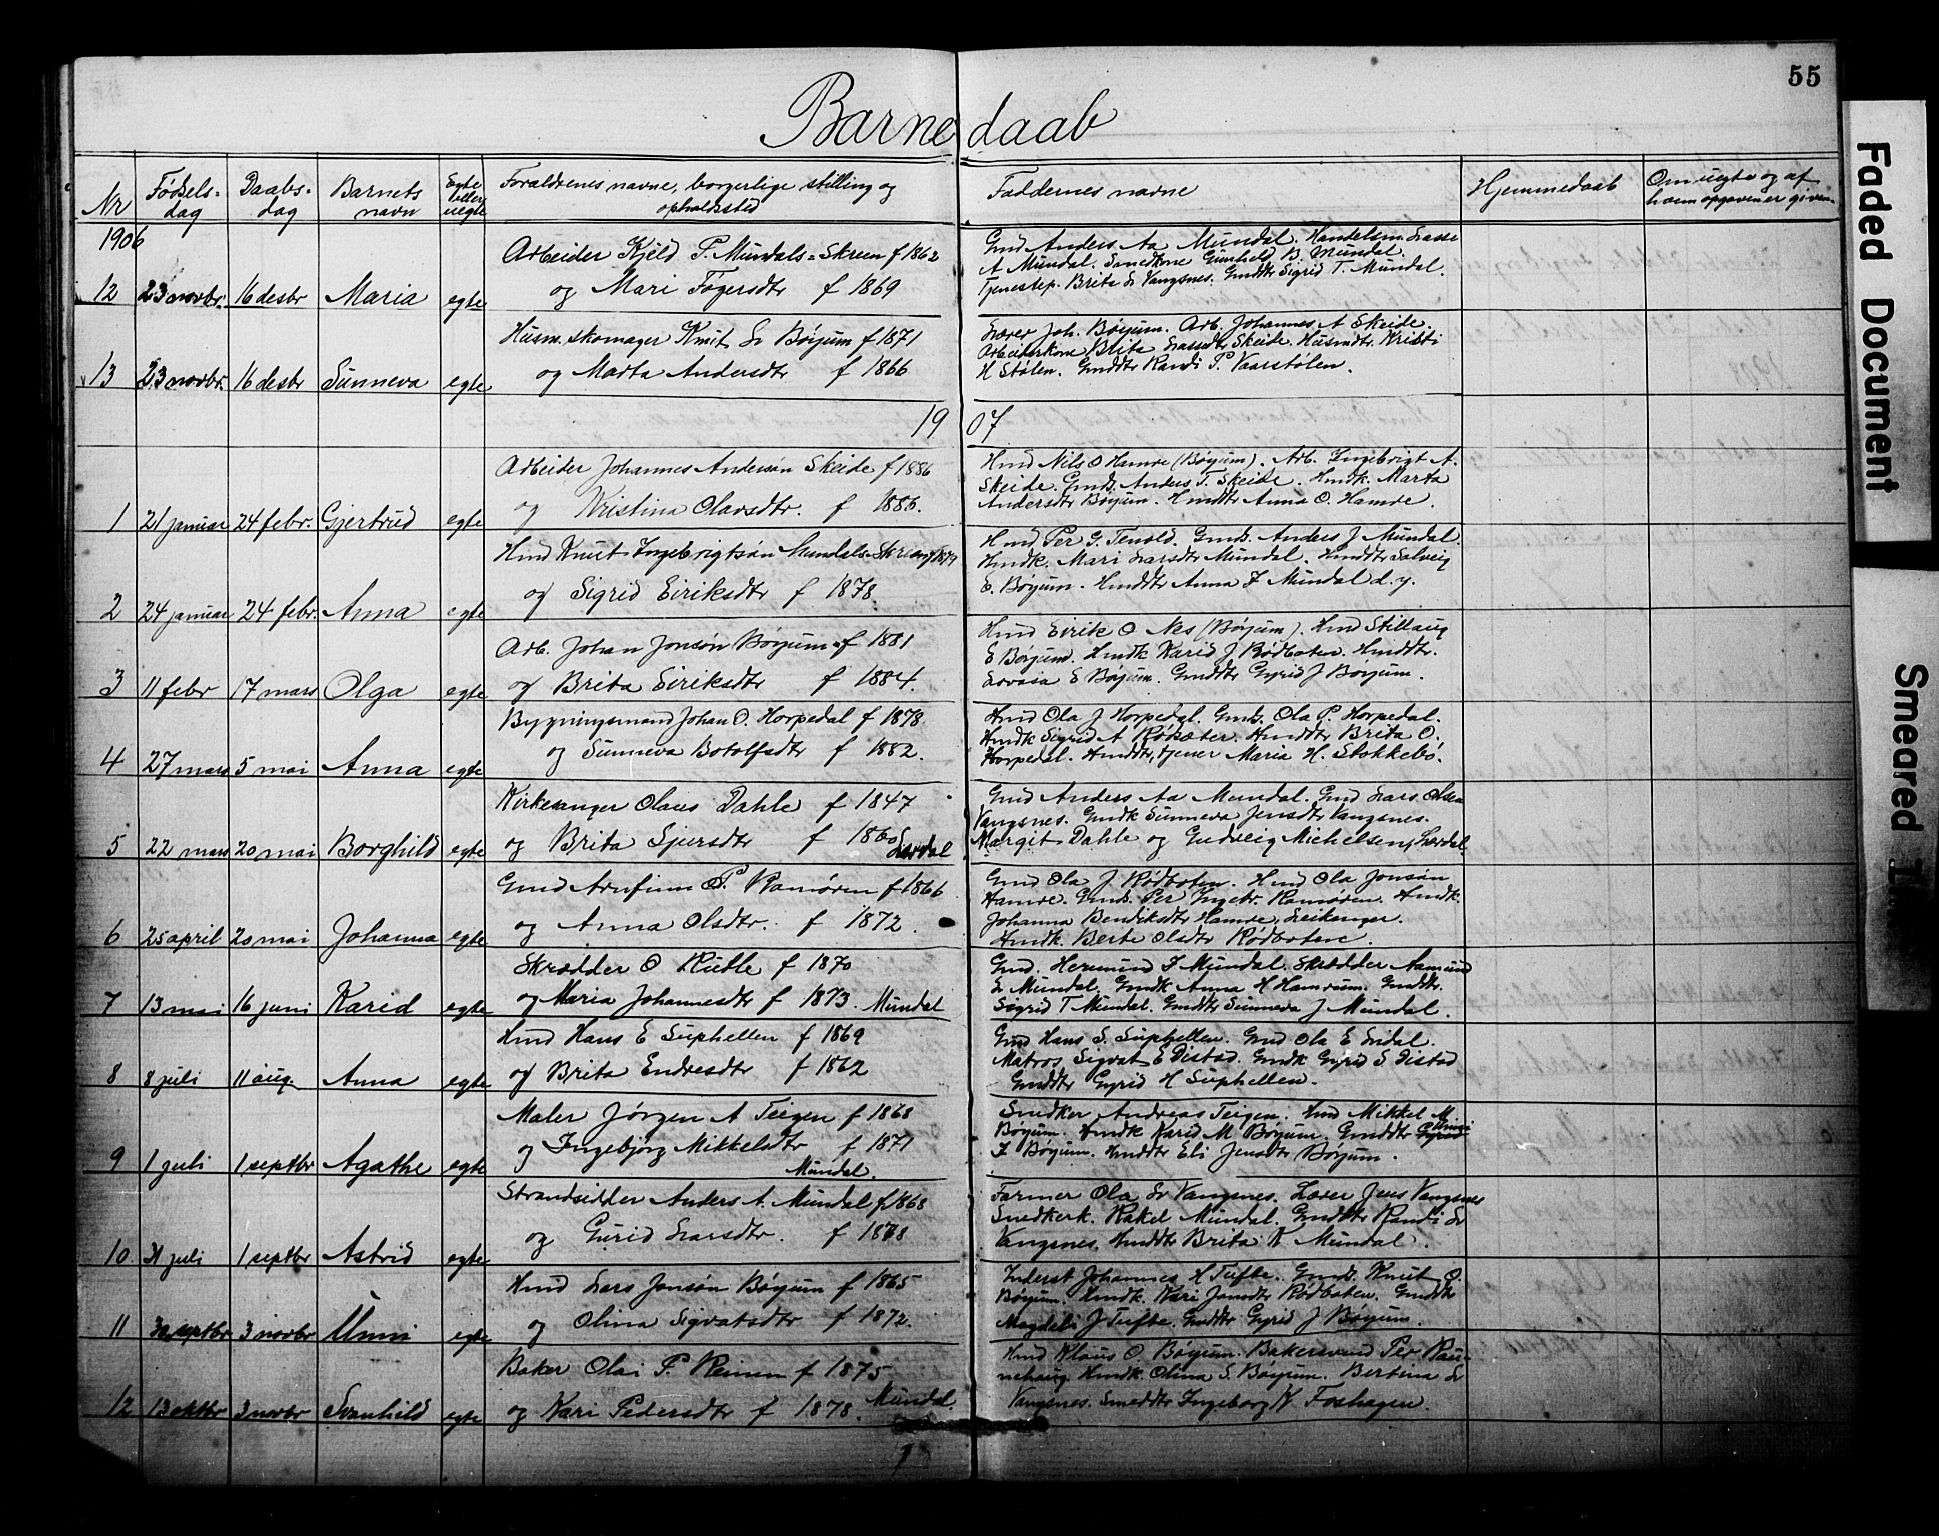 55
Barnedaab
Nr
Fødselsdag
Daabsdag
Barnets navn
Egte eller uegte
Forældrenes navne, borgerlige stilling og opholdssted
Faddernes navne
Hjemmedaab
Om uegte og af hvem opgaven er given
1906
12 23 novbr. 16 desbr Maria egte
Arbeider Kjeld P. Mundals-Skreen f 1862
og Mari Fogersdtr f 1869
Gmd Anders Aa Mundal. Handelsm. Lasse
A Mundal. Smedkone Gunhild B. Mundal.
Tjenestep. Brita L Vangsnes. Gmddtr Sigrid T. Mundal.
13 23 novbr. 16 desbr Sunneva egte
Husm. skomager Knut L Bøyum f 1871
og Marta Andersdtr f 1866
Lærer Joh. Bøyum. Arb. Johannes A Skeide.
Arbeiderkone Brita Lassedtr Skeide. Husmdtr. Kristi
H Stølen. Gmddtr Randi P. Vaarstølen.
1907
1 21 januar 24 febr. Gjertrud egte
Arbeider Johannes Andersøn Skeide f 1886
og Kristina Olavsdtr. f 1886.
Hmd Nils O Hamre (Bøyum). Arb. Ingebrigt A.
Skeide. Gmds. Anders T. Skeide. Hmdk. Marta
Andersdtr Bøyum. Hmddtr Anna O Hamre.
2 24 januar 24 febr. Anna egte
Hmd Knut Ingebrigtsøn Mundals-Skreen
og Sigrid Eiriksdtr f 1878.
Hmd Per G. Tenold. Gmds. Anders J Mundal.
Hmdk. Mari Larsdtr Mundal. Hmddtr Salveig
E. Bøyum. Hmddtr Anna I Mundal d. y.
3 11 febr 17 mars Olga egte
Arb. Johan Jonsøn Bøyum f 1881
og Brita Eiriksdtr f 1884.
Hmd Eirik O Nes (Bøyum). Hmd Stillaug
E Bøyum. Hmdk Karid J Rødboten. Hmddtr.
Lovisa E Bøyum. Gmddtr Gyrid J Bøyum.
4 27 mars 5 mai Anna egte
Bygningsmand Johan O. Horpedal f 1878.
og Sunneva Botolfsdtr f 1882.
Hmd Ola J Horpedal. Gmds. Ola P. Horpedal.
Hmdk Sigrid A Rødsæter. Hmddtr Brita O.
Horpedal. Hmddtr, tjener Maria H. Stokkebø.
5 22 mars 20 mai Borghild egte
Kirkesanger Olaus Dahle f 1847
og Brita Sjursdtr f 1860 Lærdal
Gmd Anders Aa Mundal. Gmd Lars Olsen
Vangsnes. Gmdk Sunneva Jensdtr Vangsnes.
Margit Dahle og Gudveig Michelsen, Lærdal.
6 25 april 20 mai Johanna egte
Gmd Arnfinn P. Ramøren f 1866
og Anna Olsdtr. f 1872.
Gmd Ola J Rødboten. Hmd Ola Jonsøn
Hamre. Gmds. Per Ingebr. Ramøren. Hmdk.
Johanna Bendiksdtr Hamre, Leikanger.
Hmdk. Berte Olsdtr Rødboten.
7 13 mai 16 juni Karid egte
Skrædder O Rutle f 1870
og Maria Johannesdtr f 1873. Mundal
Gmd. Heremund I Mundal. Skrædder Aamund
L Mundal. Gmdk Anna H Hamrum. Gmddtr.
Sigrid T Mundal. Gmddtr Sunneva J Mundal.
8 8 juli 11 aug. Anna egte
Hmd Hans E Suphellen f 1869
og Brita Endresdtr f 1862
Gmd Hans S. Suphellen. Gmd Ola E Eridal.
Matros Sigvat E Distad. Gmdk Gyrid S Distad
Gmddtr Gyrid H Suphellen.
9 1 juli 1 septbr Agathe egte
Maler Jørgen A Teigen f 1868
og Ingebjørg Mikkelsdtr f 1871
Mundal.
Snedker Andreas Teigen. Hmd Mikkel M.
Bøyum. Hmdk Karid M Bøyum. Gmddtr Unni
I Bøyum. Hmddtr Eli Jensdtr Bøyum.
10 21 juli 1 septbr Astrid egte
Strandsidder Anders A. Mundal f 1868
og Gurid Larsdtr. f 1868
Farmer Ola L Vangsnes. Lærer Jens Vangsnes
Snedkerk. Rakel Mundal. Gmddtr Randi L
Vangsnes. Hmddtr Brita K Mundal.
11 30 septbr 3 novbr Unni egte
Hmd Lars Jonsøn Bøyum f 1865
og Olina Sigvatsdtr f 1872.
Inderst Johannes H Tufte. Gmds. Knut O.
Bøyum. Hmdk. Kari Jonsdtr Rødboten. Gmddtr
Magdeli J Tufte. Gmddtr Gyrid J Bøyum.
12 13 oktbr 3 novbr Svanhild egte
Baker Olai P. Reinen f 1875
og Kari Pedersdtr f 1878. Mundal.
Hmd Klaus O Bøyum. Bakersvend Per Raunehaug.
Hmdk. Olina S. Bøyum. Bertina L
Vangsnes. Smeddtr Ingeborg K Foshagen.
Faded Document
Smeared